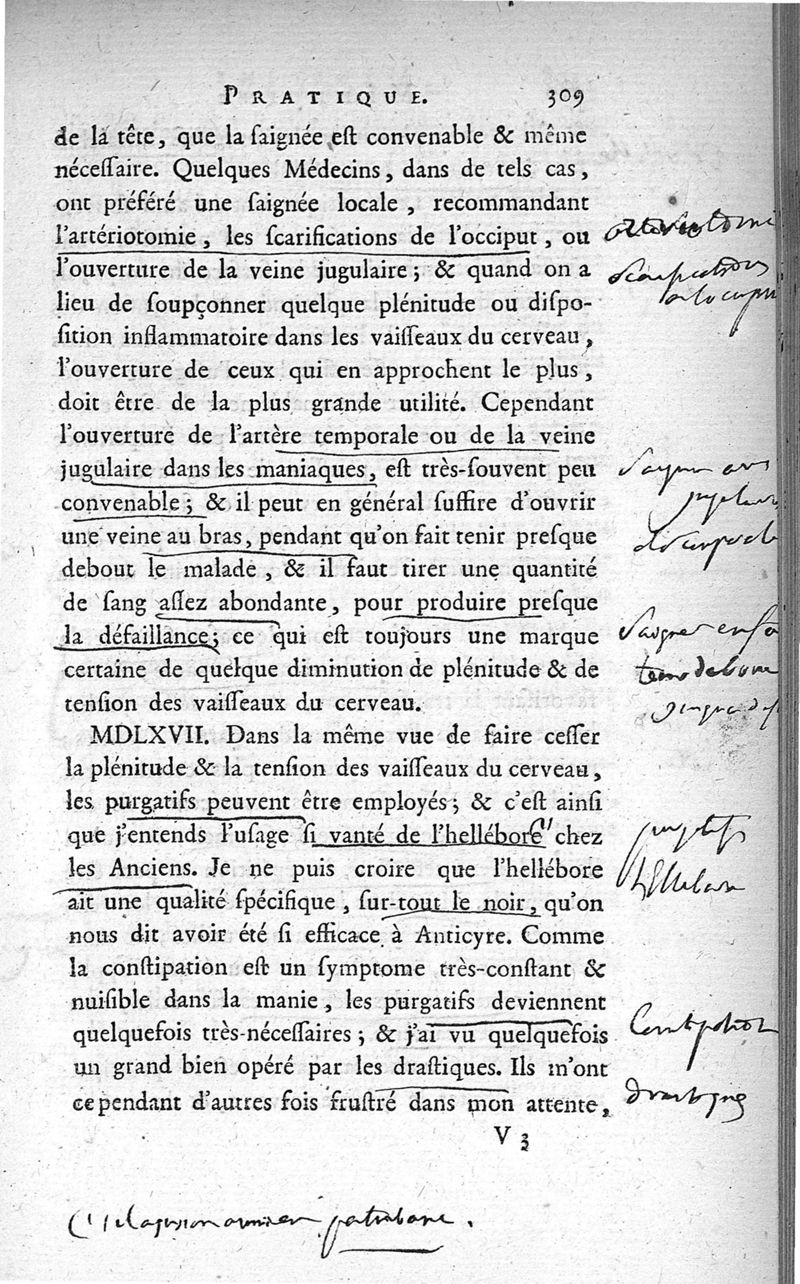 PRATIQUE. 309
de la tête, que la ſaignée eſt convenable & même
néceſſaire. Quelques Médecins, dans de tels cas,
ont préféré une ſaignée locale, recommandant
l'artériotomie, les ſcarifications de l'occiput, ou
l'ouverture de la veine jugulaire; & quand on a
lieu de ſoupçonner quelque plénitude ou diſpo-
ſition inflammatoire dans les vaiſſeaux du cerveau,
l'ouverture de ceux qui en approchent le plus,
doit être de la plus grande utilité. Cependant
l'ouverture de l'artère temporale ou de la veine
jugulaire dans les maniaques, eſt très-ſouvent peu
convenable; & il peut en général ſuffire d'ouvrir
une veine au bras, pendant qu'on fait tenir preſque
debout le malade, & il faut tirer une quantité
de ſang aſſez abondante, pour produire preſque
la défaillance; ce qui eſt toujours une marque
certaine de quelque diminution de plénitude & de
tenſion des vaiſſeaux du cerveau.
MDLXVII. Dans la même vue de faire ceſſer
la plénitude & la tenſion des vaiſſeaux du cerveau,
les purgatifs peuvent être employés; & c'eſt ainſi
que j'entends l'uſage ſi vanté de l'hellébore (1) chez
les Anciens. Je ne puis croire que l'hellébore
ait une qualité ſpécifique, ſur-tout le noir, qu'on
nous dit avoir été ſi efficace à Anticyre. Comme
la conſtipation eſt un ſymptome très-conſtant &
nuiſible dans la manie, les purgatifs deviennent
quelquefois très-néceſſaires; & j'ai vu quelquefois
un grand bien opéré par les draſtiques. Ils m'ont
cependant d'autres fois fruſtré dans mon attente,
V 3
arteriotomi
purgatifs
hellebore
Constipation
drastiques
(1)